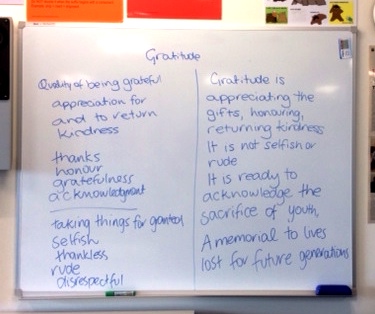 Gratitude
Quality of being grateful
appreciation for
and to return
kindness
thanks
honour
gratefulness
acknowledgment
taking things for granted
selfish
thankless
rude
disrespectful
Gratitude is
appreciating the
gifts, honouring,
returning kindness
It is not selfish or
rude
It is ready to
acknowledge the
sacrifice of youth,
A memorial to lives
lost for future generations